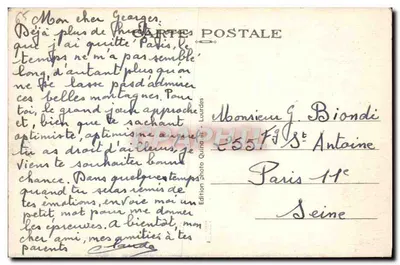 Mon cher Georges.
Déjà plus de
que j'ai quitté Paris, le
temps ne m'a pas semblé
long, d'autant plus qu'on
ne se lasse pas d'admirer
ces belles montagnes. Pour
toi, le grand jour approche
et, bien que te sachant
optimiste,
tu as droit d'ailleurs, je
viens te souhaiter bonne
chance. Dans quelques temps
quand tu seras remis de
tes émotions, envoie moi un
petit mot pour me donner
les épreuves. A bientôt, mon
cher ami, mes amitiés à tes
parents
CARTE POSTALE
Edition photo Lourdes
Monsieur G. Biondi
255 Fg St Antoine
Paris 11e
Seine